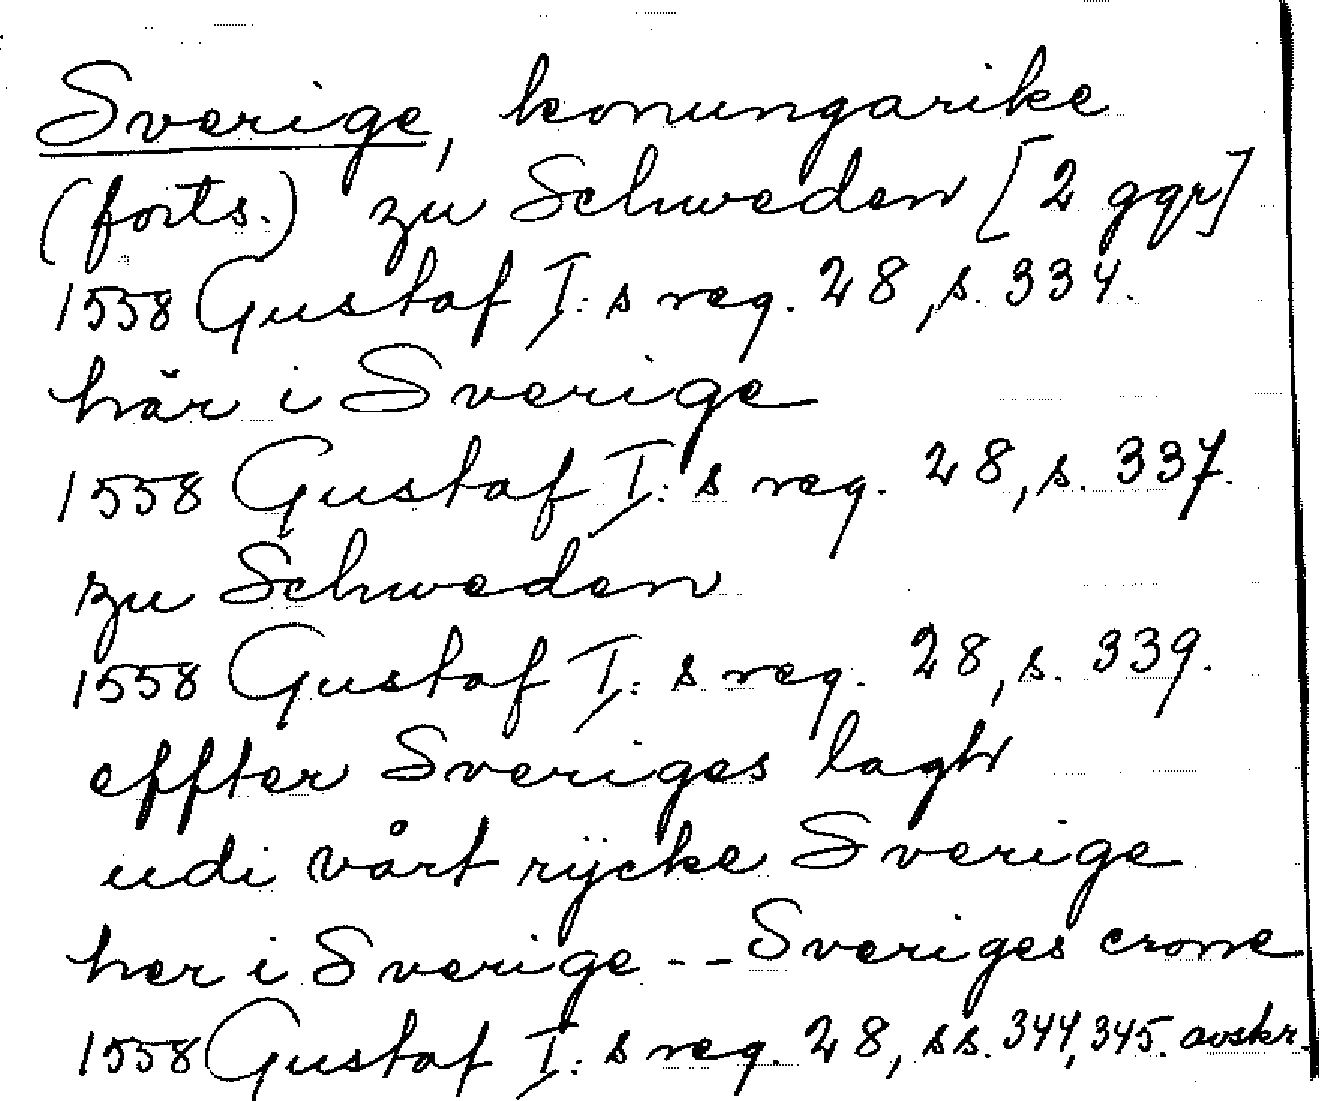 Sverige, konungarike
(forts.) zu Schweden [2 ggr]
1558 Gustaf I:s reg. 28, s. 334.
här i Sverige
1558 Gustaf I:s reg. 28, s. 337.
zu Schweden
1558 Gustaf I:s reg. 28, s. 339.
effter Sveriges lagh
udi vårt rycke Sverige
her i Sverige -- Sveriges crone
1558 Gustaf I:s reg. 28, ss. 344, 345. avskr.